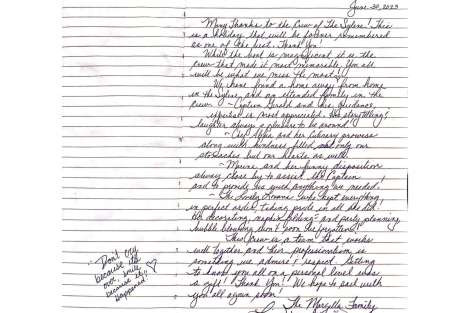 June 30, 2023
Many Thanks to the Crew of The Sylene! This
is a holiday that will be forever remembered
as one of the best. Thank You!
While the boat is magnificent it is the
crew that made it most memorable. You all
will be what we miss the most!
We have found a home away from home
in the Sylene, and an extended family in the
crew ~ Captain Gerald and his guidance,
expertise is most appreciated. His storytelling &
laughter always a pleasure to be around!
~ Chef and her culinary prowess
along with kindness filled not only our
stomachs but our hearts as well.
~ and her funny disposition
always close by to assist the Captain
and to provide us with anything we needed!
~ The lovely who kept everything
in perfect order taking pride in all she did.
Her decorating, napkin folding and party planning
bubble blowing won't soon be forgotten!
This crew is a team that works
well together and their professionalism is
something we admire & respect. Getting
to know you all on a personal level was
a gift! Thank You! We hope to sail with
you all again soon!
The Family
"Don't cry
because it's
over, smile
because it
happened!"